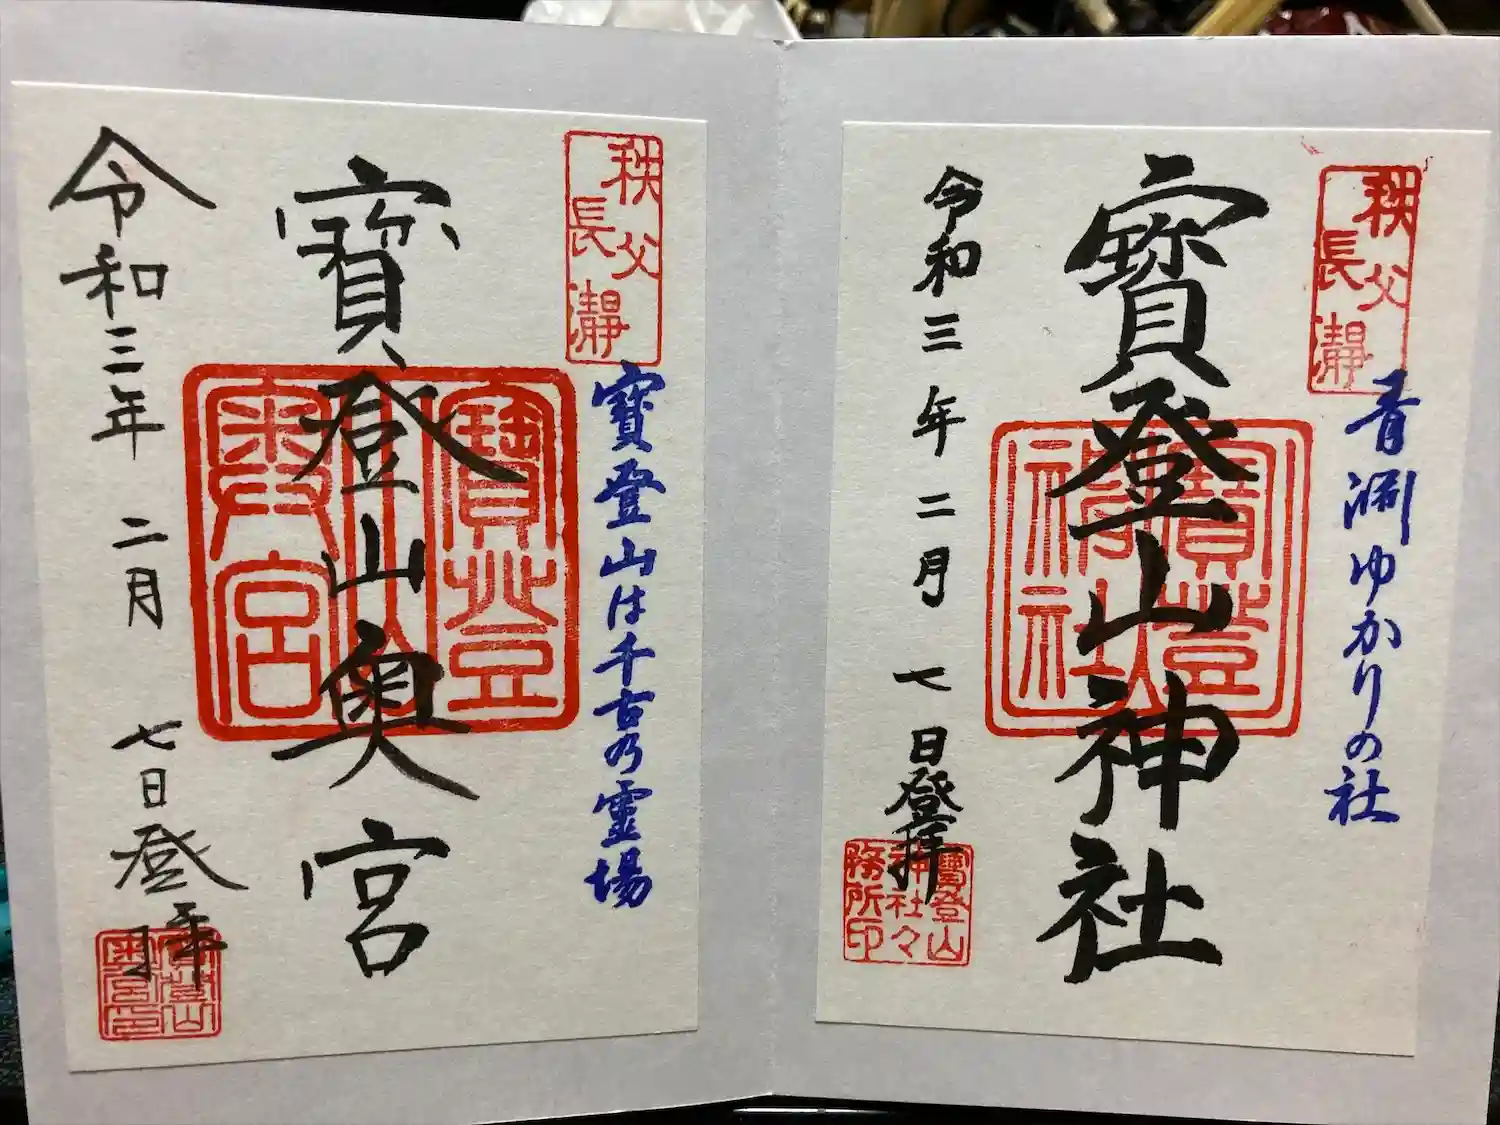 秩父
長瀞
青淵ゆかりの社
寳登山神社
寳登山
神社
令和三年二月七日登拝
寳登山
神社々
務所印
秩父
長瀞
寳登山は千古乃霊場
寳登山奥宮
寳登
山
奥宮
令和三年二月七日登拝